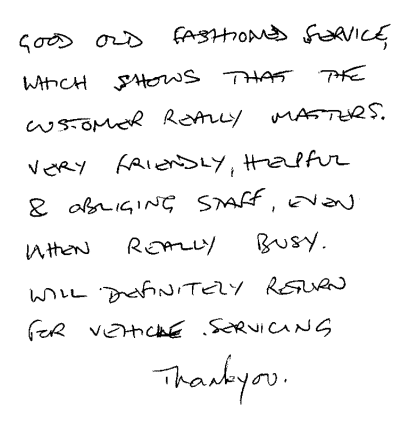 GOOD OLD FASHIONED SERVICE,
WHICH SHOWS THAT THE
CUSTOMER REALLY MATTERS.
VERY FRIENDLY, HELPFUL
& OBLIGING STAFF, EVEN
WHEN REALLY BUSY.
WILL DEFINITELY RETURN
FOR VEHICLE SERVICING
Thankyou.